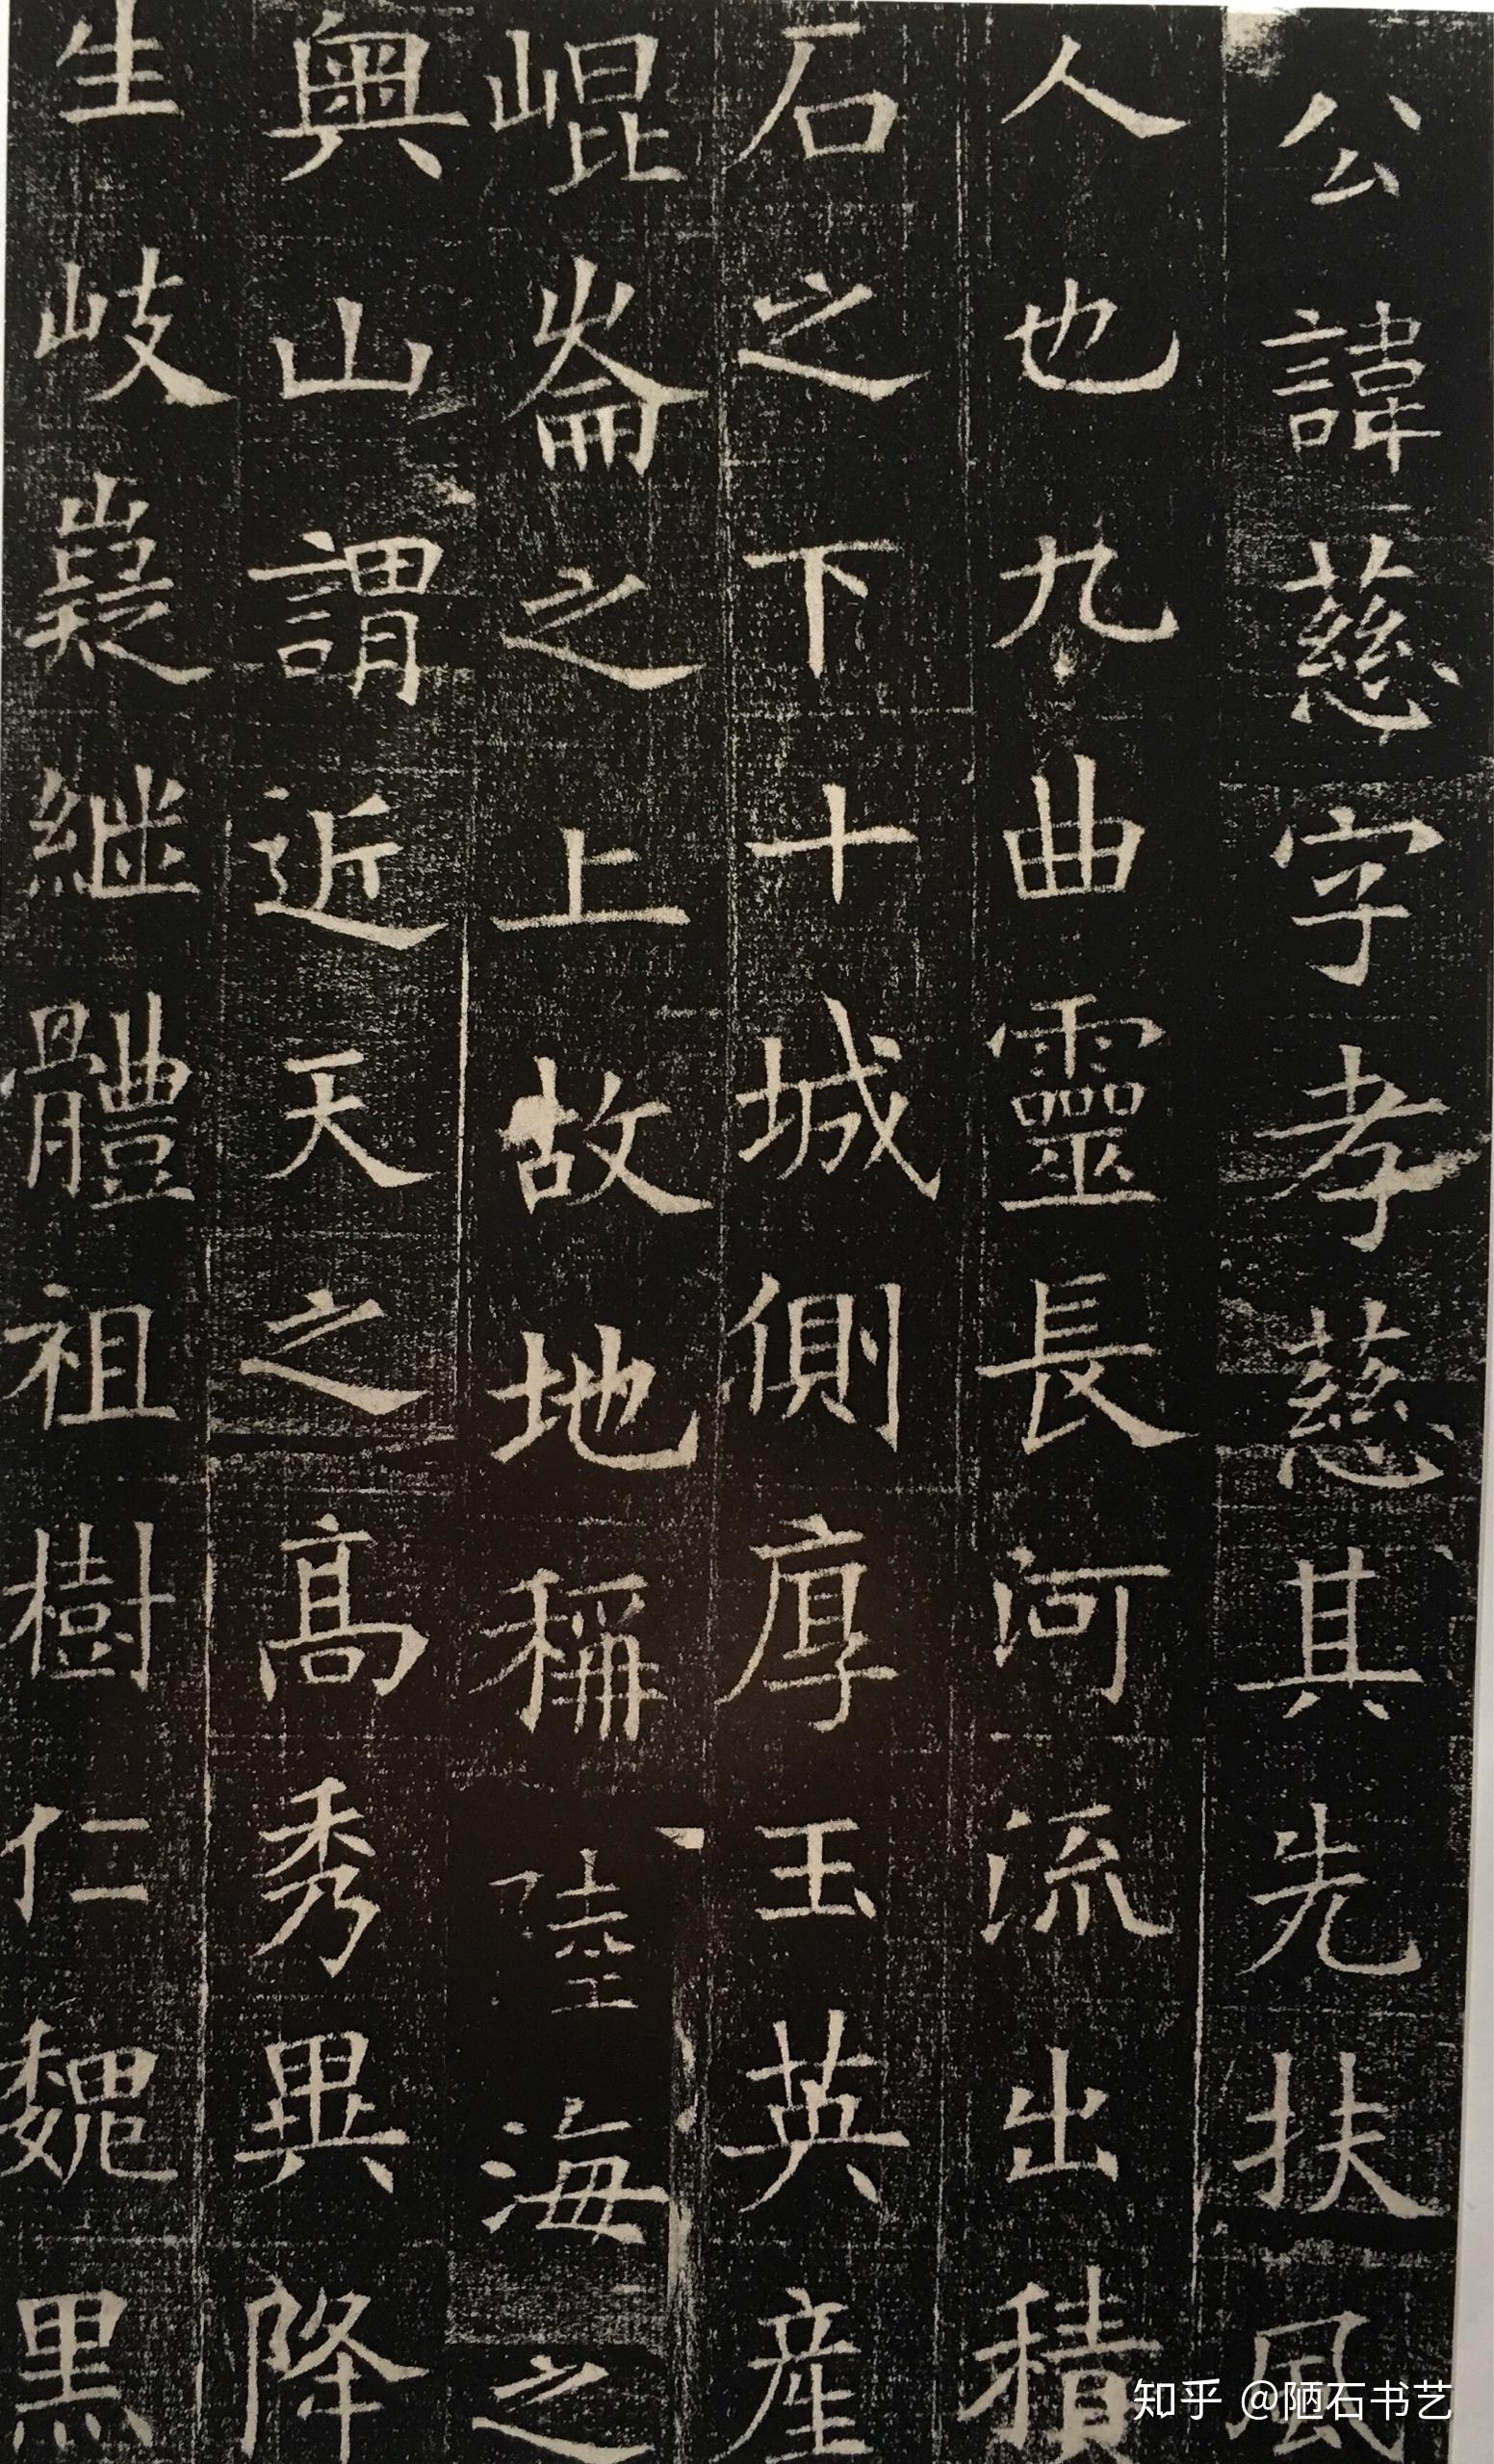 公諱慈字孝慈其先扶風
人也九曲靈長河流出積
石之下十城側厚玉英產
崐崘之上故地稱陸海之
奧山謂近天之高秀異降
生岐嶷継體祖樹仁魏黑
知乎 @陋石书艺